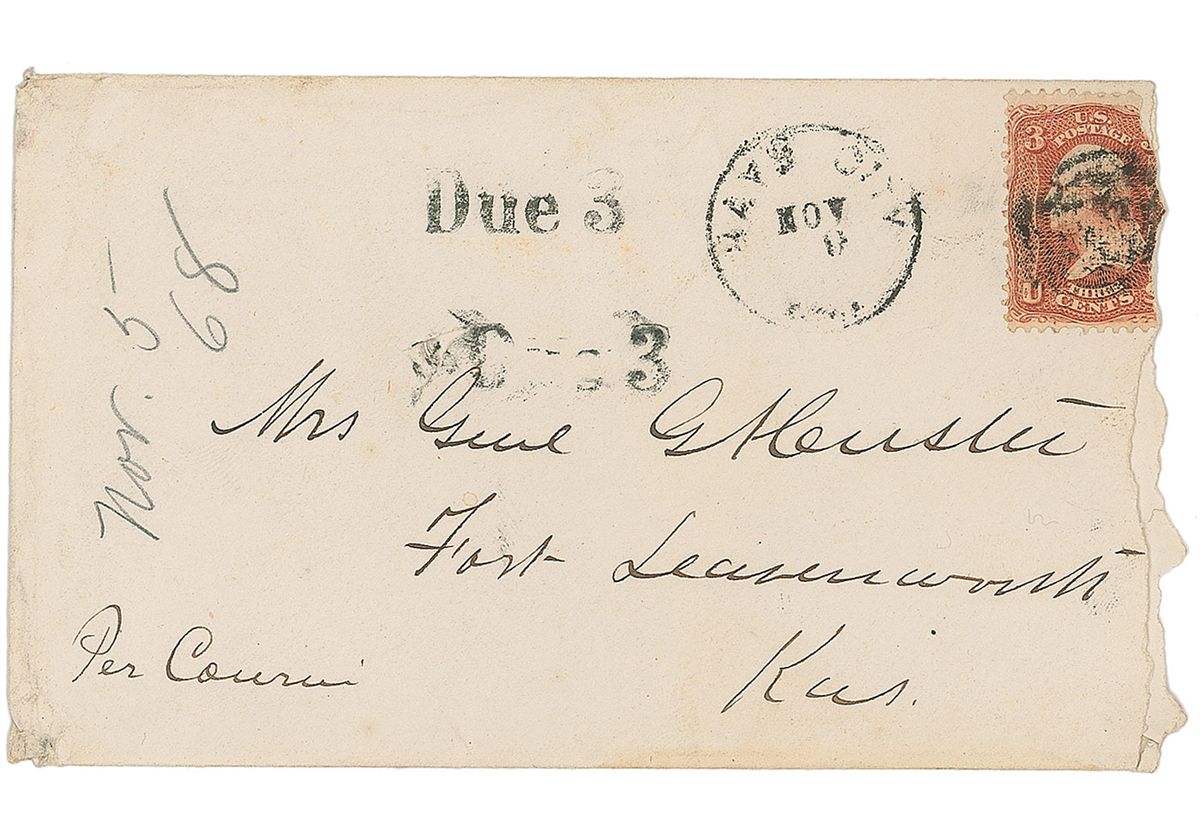 U.S.
POSTAGE
3
THREE
CENTS
U
HAYS CITY
NOV
Due 3
Due 3
Nov. 5
68
Mrs Genl G A Custer
Fort Leavenworth
Kas.
Per Courier